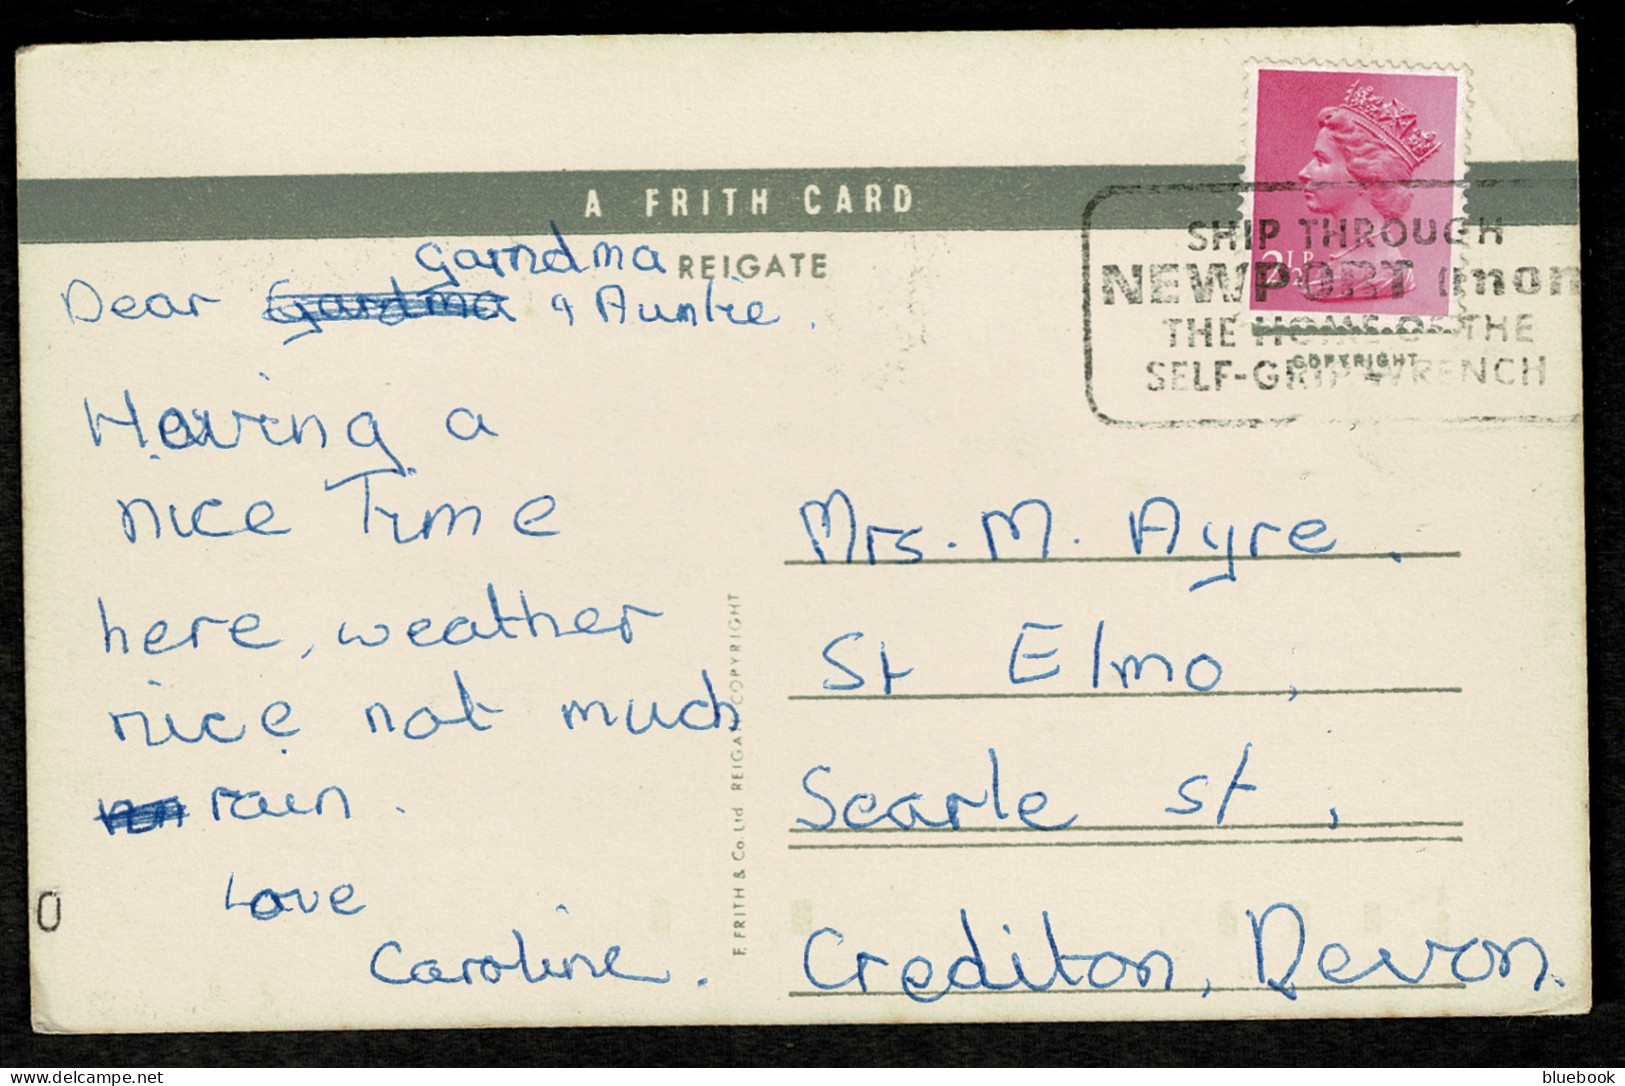 A FRITH CARD
REIGATE
2½P
SHIP THROUGH
NEWPORT (mon
THE HOME OF THE
SELF-GRIP WRENCH
COPYRIGHT
garndma
Dear Gardma & Auntie.
Having a
nice Time
here, weather
nice not much
rain.
Love
Caroline.
F. FRITH & Co. Ltd REIGATE COPYRIGHT
Mrs. M. Ayre.
St Elmo,
Searle St,
Crediton, Devon.
0
bluebook